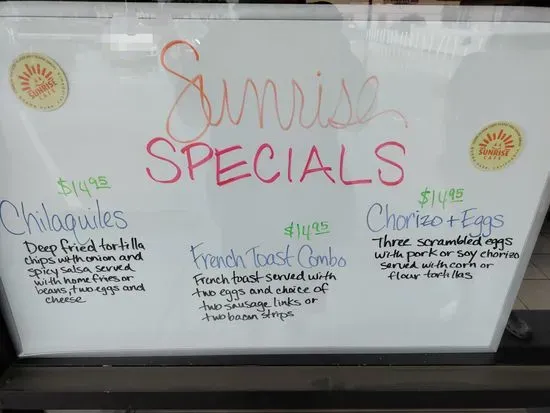 Sunrise
SPECIALS
SUNRISE
CAFE
SUNRISE
CAFE
$14.95
Chilaquiles
Deep fried tortilla
chips with onion and
spicy salsa, served
with home fries, or
beans, two eggs and
cheese
$14.95
French Toast Combo
French toast served with
two eggs and choice of
two sausage links or
two bacon strips
$14.95
Chorizo + Eggs
Three scrambled eggs
with pork or soy chorizo
served with corn or
flour tortillas